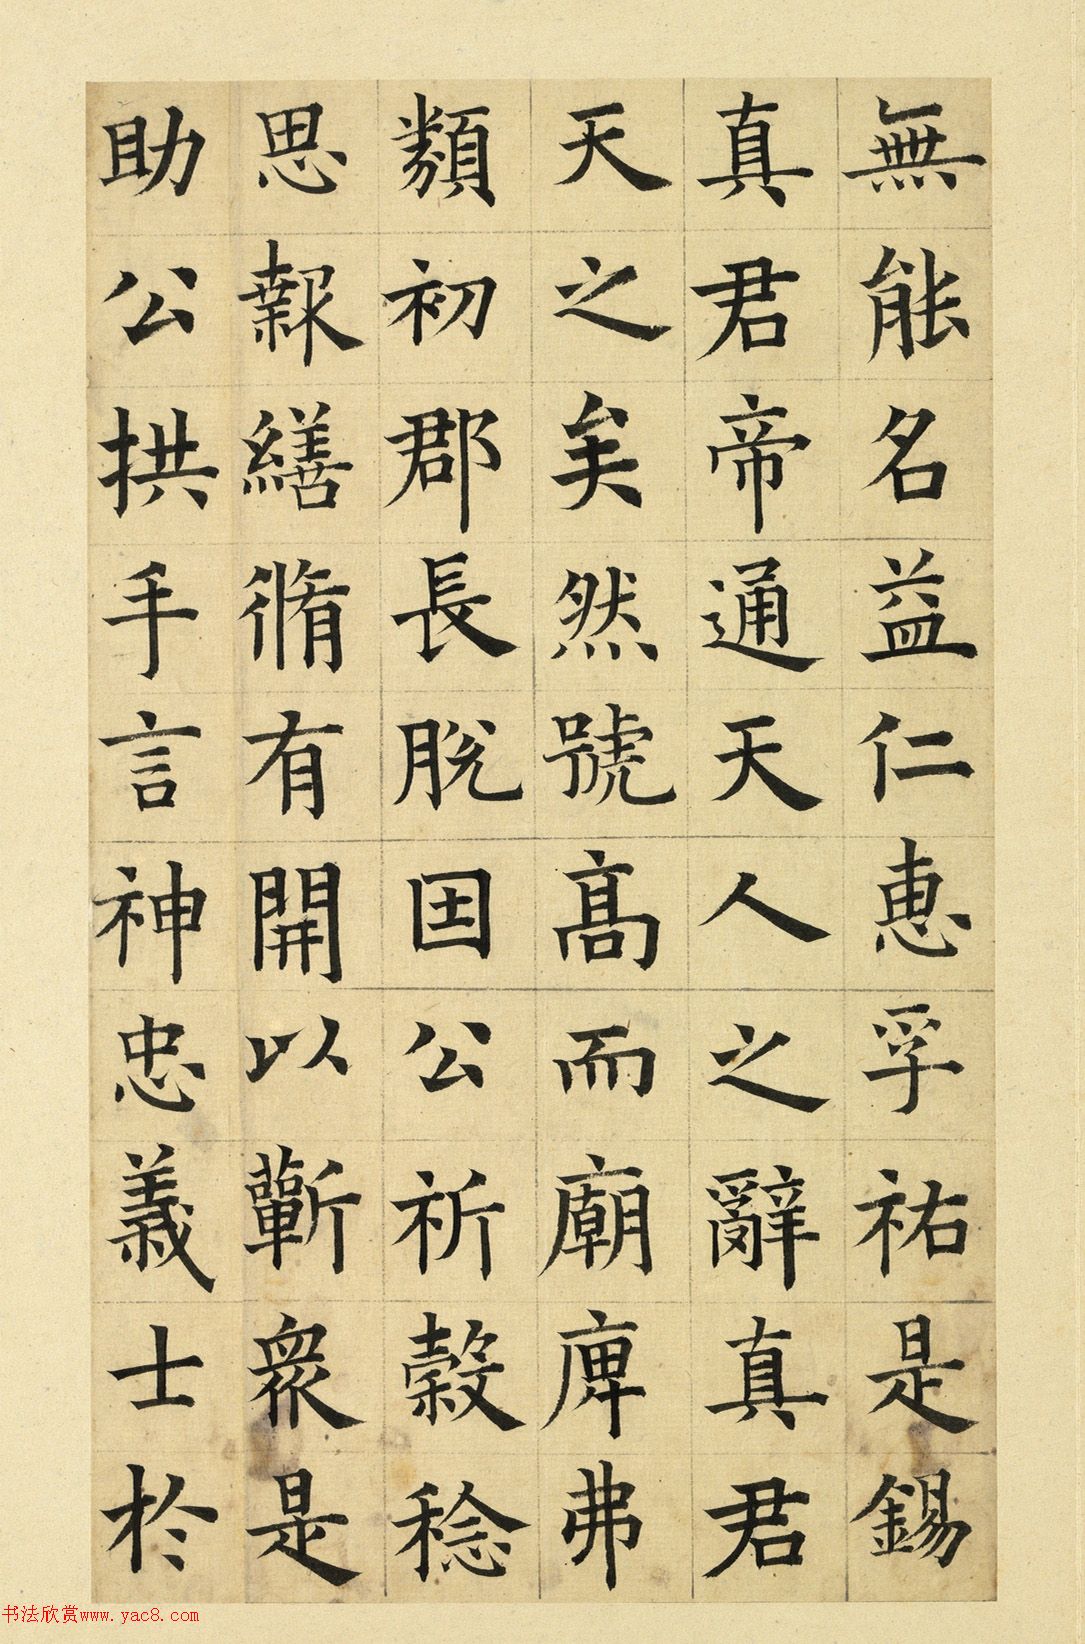 無能名益仁惠孚祐是錫
真君帝通天人之辭真君
天之矣然號髙而廟庳弗
類初郡長脫因公祈榖稔
思報繕脩有開以蘄衆是
助公拱手言神忠義士於
书法欣赏www.yac8.com